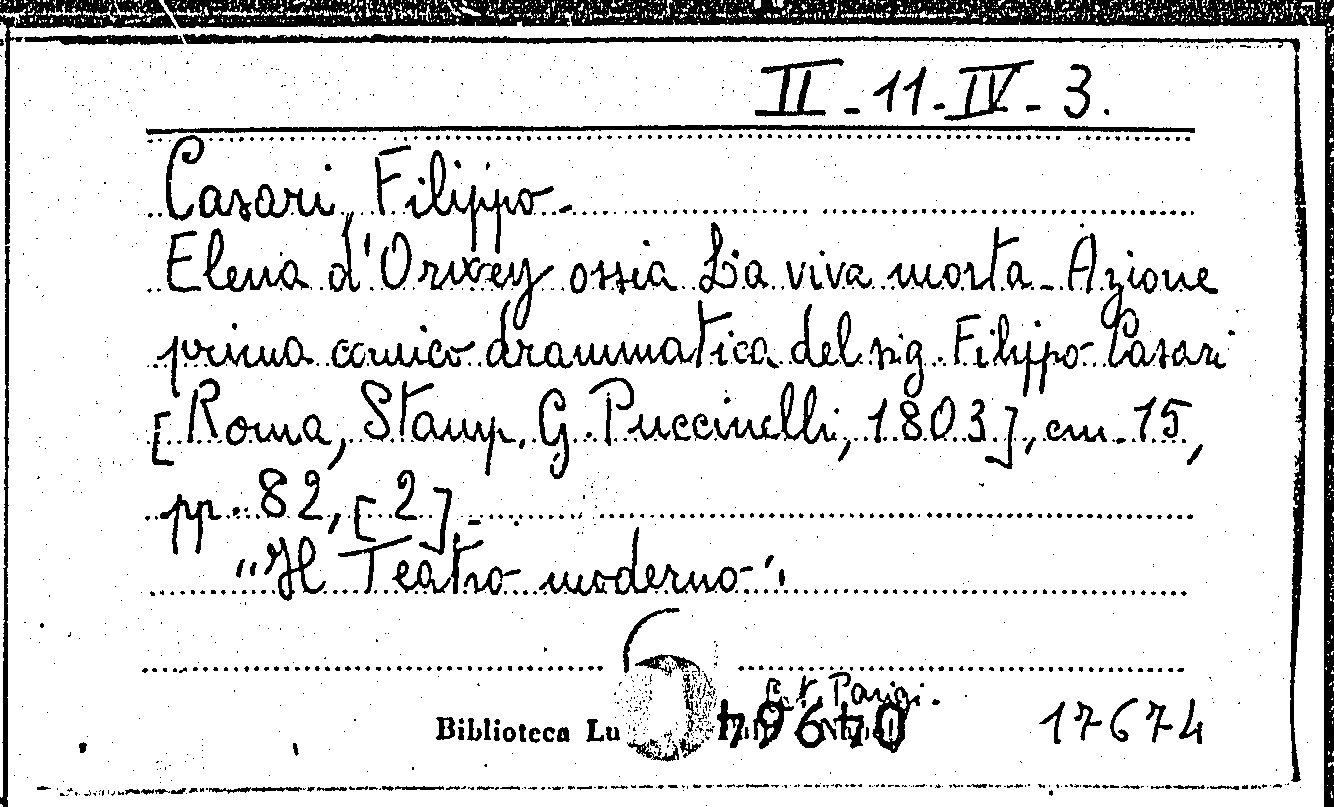 II - 11 - IV - 3.
Casari, Filippo -
Elena d'Orwey ossia La viva morta - Azione
prima comico drammatica del sig. Filippo Casari
[Roma, Stamp. G. Puccinelli, 1803], cm. 15,
pp. 82, [2] -
"Il Teatro moderno".
Parigi.
Biblioteca Lu
04964
17674